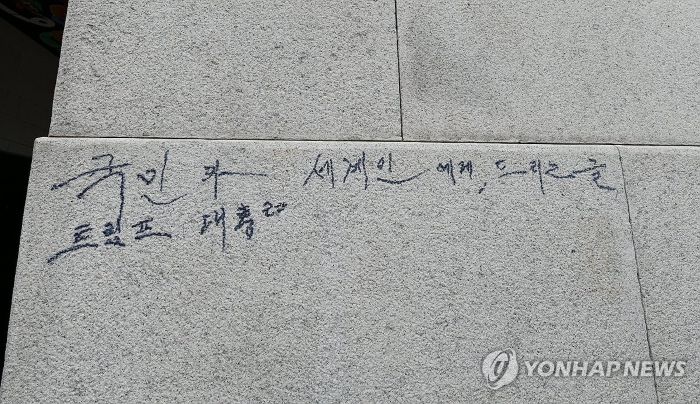 국민과 세계인에게, 드리는 글
트럼프 대통령
YONHAPNEWS